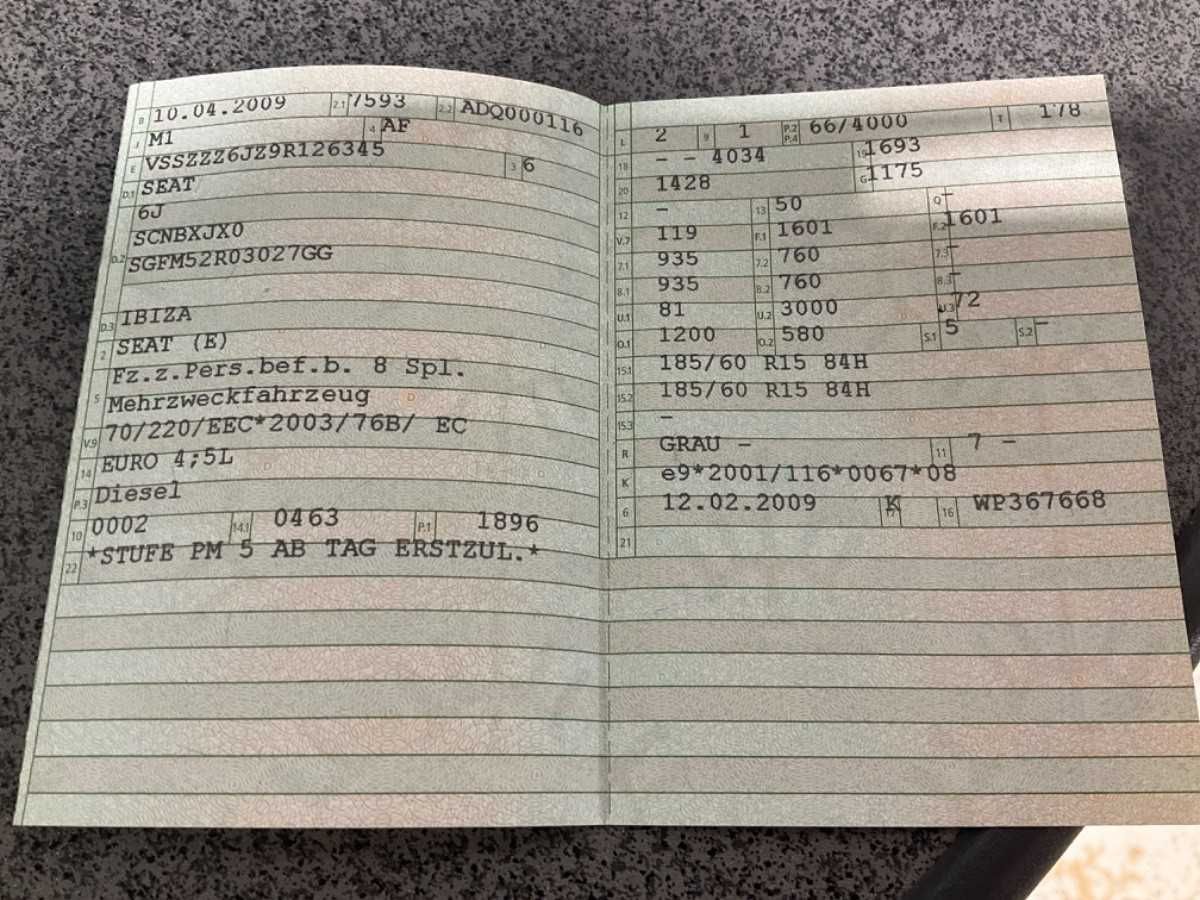 B 10.04.2009 2.1 7593 2.2 ADQ000116
J M1 4 AF
E VSSZZZ6JZ9R126345 3 6
D.1 SEAT
6J
D.2 SCNBXJX0
SGFM52R03027GG
D.3 IBIZA
2 SEAT (E)
5 Fz.z.Pers.bef.b. 8 Spl.
Mehrzweckfahrzeug
V.9 70/220/EEC*2003/76B/ EC
14 EURO 4;5L
P.3 Diesel
10 0002 14.1 0463 P.1 1896
22 *STUFE PM 5 AB TAG ERSTZUL.*
L 2 9 1 P.2 P.4 66/4000 T 178
18 - - 4034 19 1693
20 1428 G 1175
12 - 13 50 Q -
V.7 119 F.1 1601 F.2 1601
7.1 935 7.2 760 7.3 -
8.1 935 8.2 760 8.3 -
U.1 81 U.2 3000 U.3 72
O.1 1200 O.2 580 S.1 5 S.2 -
15.1 185/60 R15 84H
15.2 185/60 R15 84H
15.3 -
R GRAU - 11 7 -
K e9*2001/116*0067*08
6 12.02.2009 17 K 16 WP367668
21